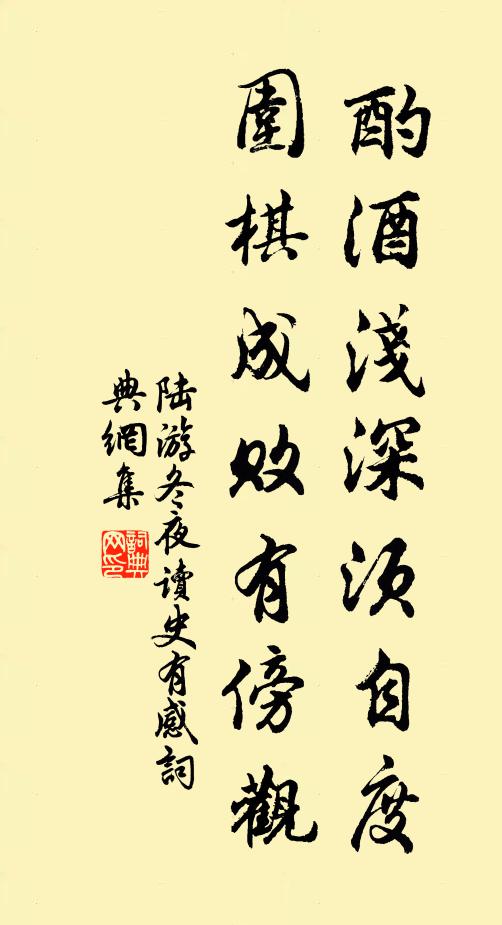 酌酒淺深須自度
圍棋成敗有傍觀
陸游冬夜讀史有感詞
典網集
詞典
网印